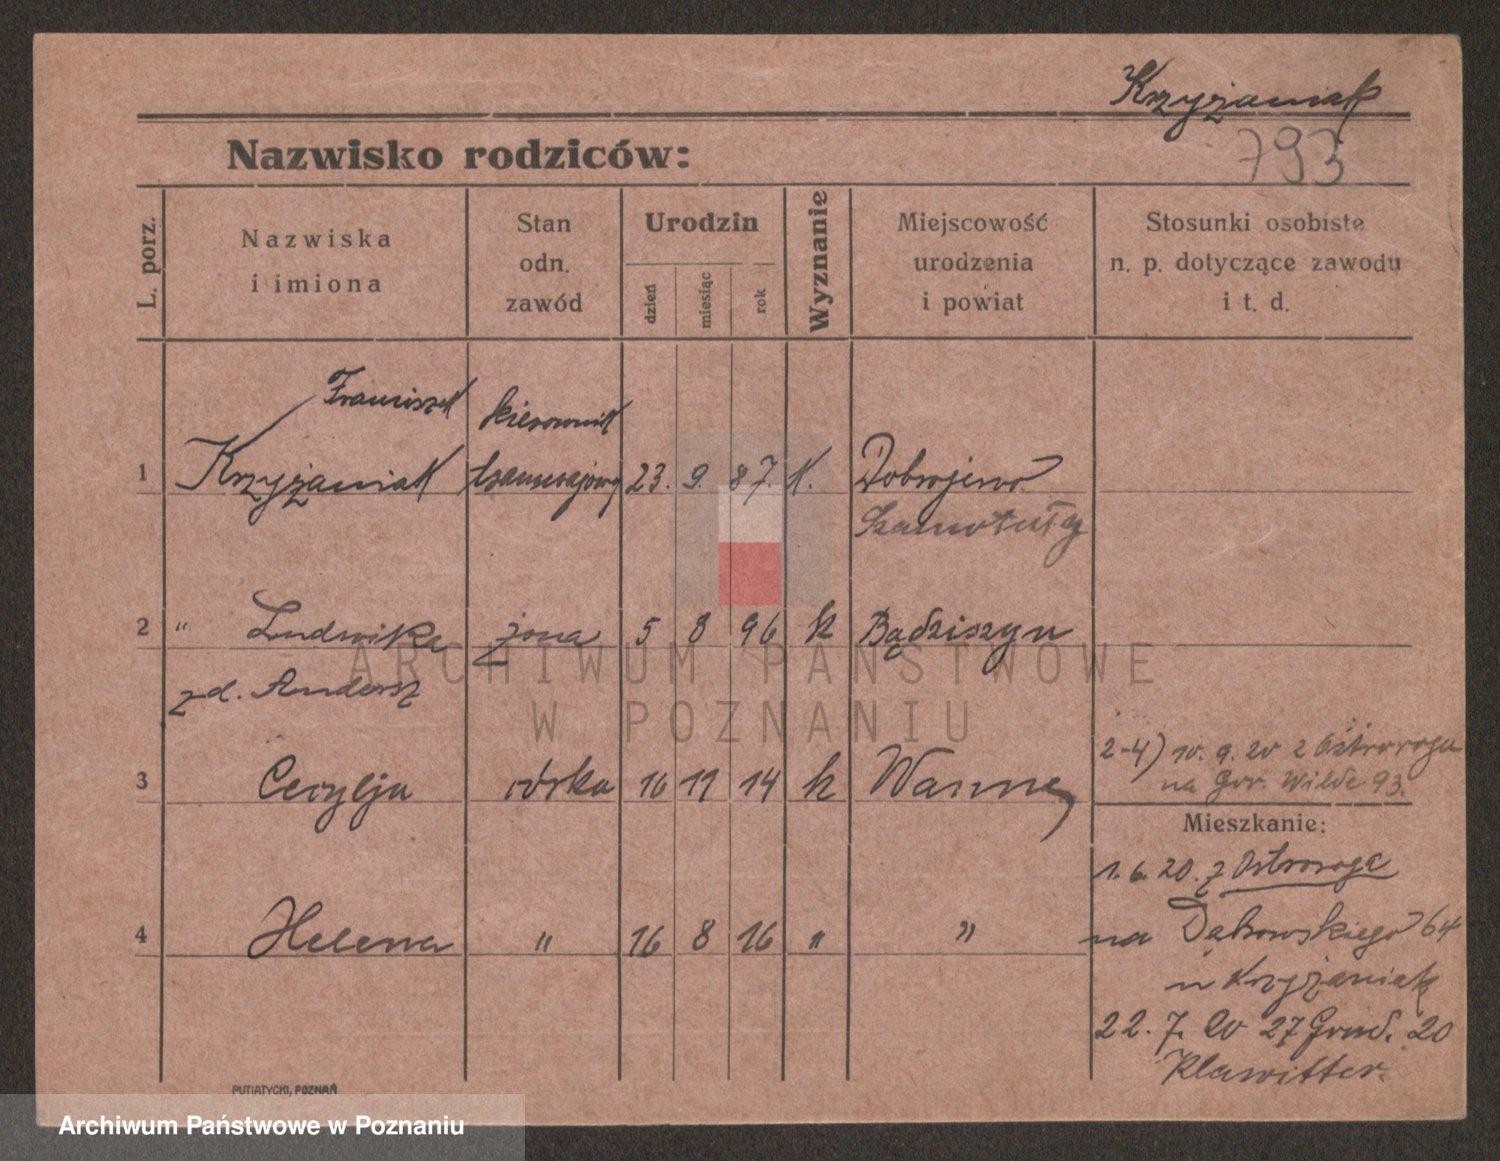 Krzyżaniak
793
Nazwisko rodziców:
L. porz.
Nazwiska
i imiona
Stan
odn.
zawód
Urodzin
dzień
miesiąc
rok
Wyznanie
Miejscowość
urodzenia
i powiat
Stosunki osobiste
n. p. dotyczące zawodu
i t. d.
Franciszek kierownik
1 Krzyżaniak tramwajowy 23. 9. 87. k. Dobrojewo
Szamotuły
2 " Ludwika żona 5 8 96 k Bądziszyn
z d. Andersz
2-4) 10. 9. 20 z Ostroroga
na Gór. Wilde 93.
3 Cecylja córka 16 11 14 k Wanne
Mieszkanie:
1. 6. 20. z Ostroroga
4 Helena " 16 8 16 " "
na Dąbrowskiego 64
u Krzyżaniak
22. 7. 20 27 Grud. 20
Klawitter.
PUTIATYCKI, POZNAŃ
ARCHIWUM PAŃSTWOWE
W POZNANIU
Archiwum Państwowe w Poznaniu